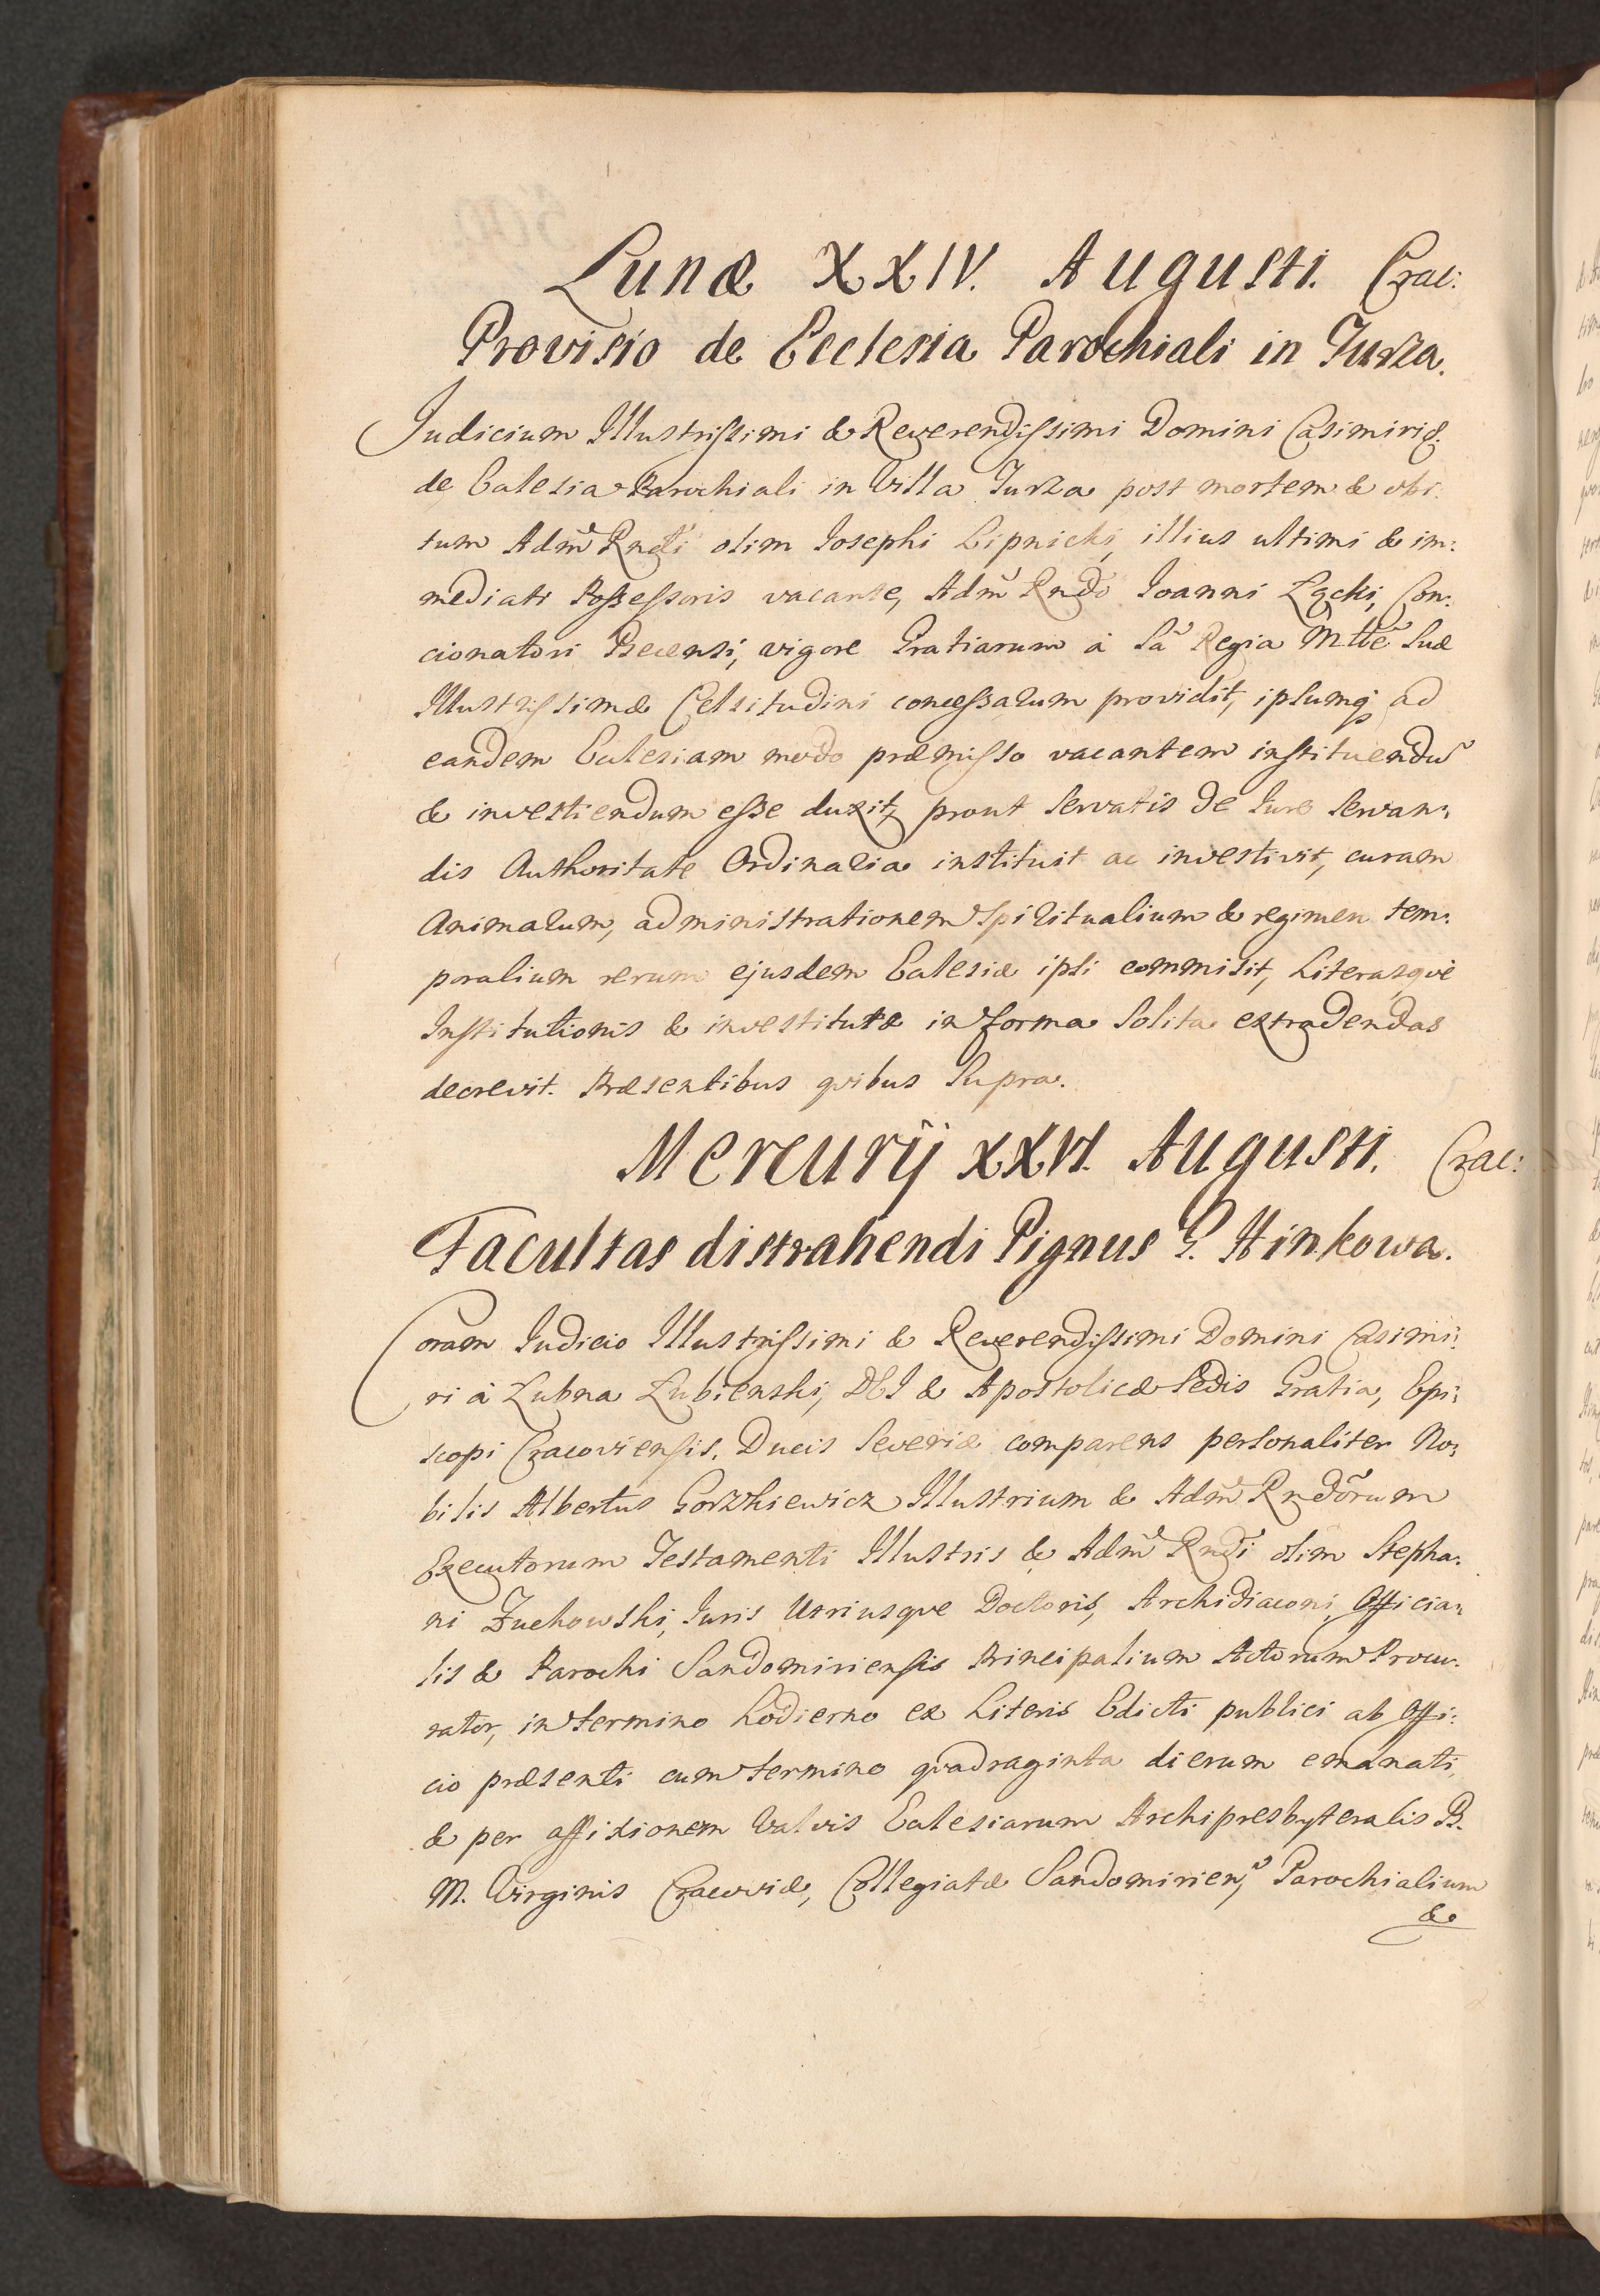 Lunæ XXIV. Augusti. Crac:
Provisio de Ecclesia Parochiali in Turza.
Judicium Illustrissimi & Reverendissimi Domini Casimiri &.
de Ecclesia Parochiali in Villa Turza post mortem & obi:
tum Adm̃ Rndi olim Josephi Lipnicki, illius ultimi & im:
mediati Possessoris vacante, Adm̃ Rndo Joanni Łącki, Con:
cionatori Becensi, vigore Gratiarum à Sã Regia Mtte Suæ
Illustrissimæ Celsitudini concessarum providit, ipsumq; ad
eandem Ecclesiam modo præmisso vacantem instituendũ
& investiendum esse duxit, prout servatis de Jure servan:
dis Authoritate Ordinaria instituit ac investivit, curam
Animarum, administrationem Spiritualium & regimen tem:
poralium rerum ejusdem Ecclesiæ ipsi commisit, Literasquè
Institutionis & investituræ in forma solita extradendas
decrevit. Præsentibus quibus supra.
Mercurij XXVI. Augusti. Crac:
Facultas distrahendi Pignus G. Hinkowa.
Coram Judicio Illustrissimi & Reverendissimi Domini Casimi:
ri à Łubna Łubienski, DEI & Apostolicæ Sedis Gratia, Epi:
scopi Cracoviensis, Ducis Severiæ comparens personaliter No:
bilis Albertus Gorzkiewicz Illustrium & Adm̃ Rndõrum
Executorum Testamenti Illustris & Adm̃ Rndi olim Stepha:
ni Żuchowski, Juris Utriusque Doctoris, Archidiaconi, Officia:
lis & Parochi Sandomiriensis Principalium Actorum Procu:
rator, in termino hodierno ex Literis Edicti publici ab Offi:
cio præsenti cum termino quadraginta dierum emanati,
& per affixionem Valvis Ecclesiarum Archipresbyteralis B.
M. Virginis Cracoviæ, Collegiatæ Sandomirien, Parochialium
&